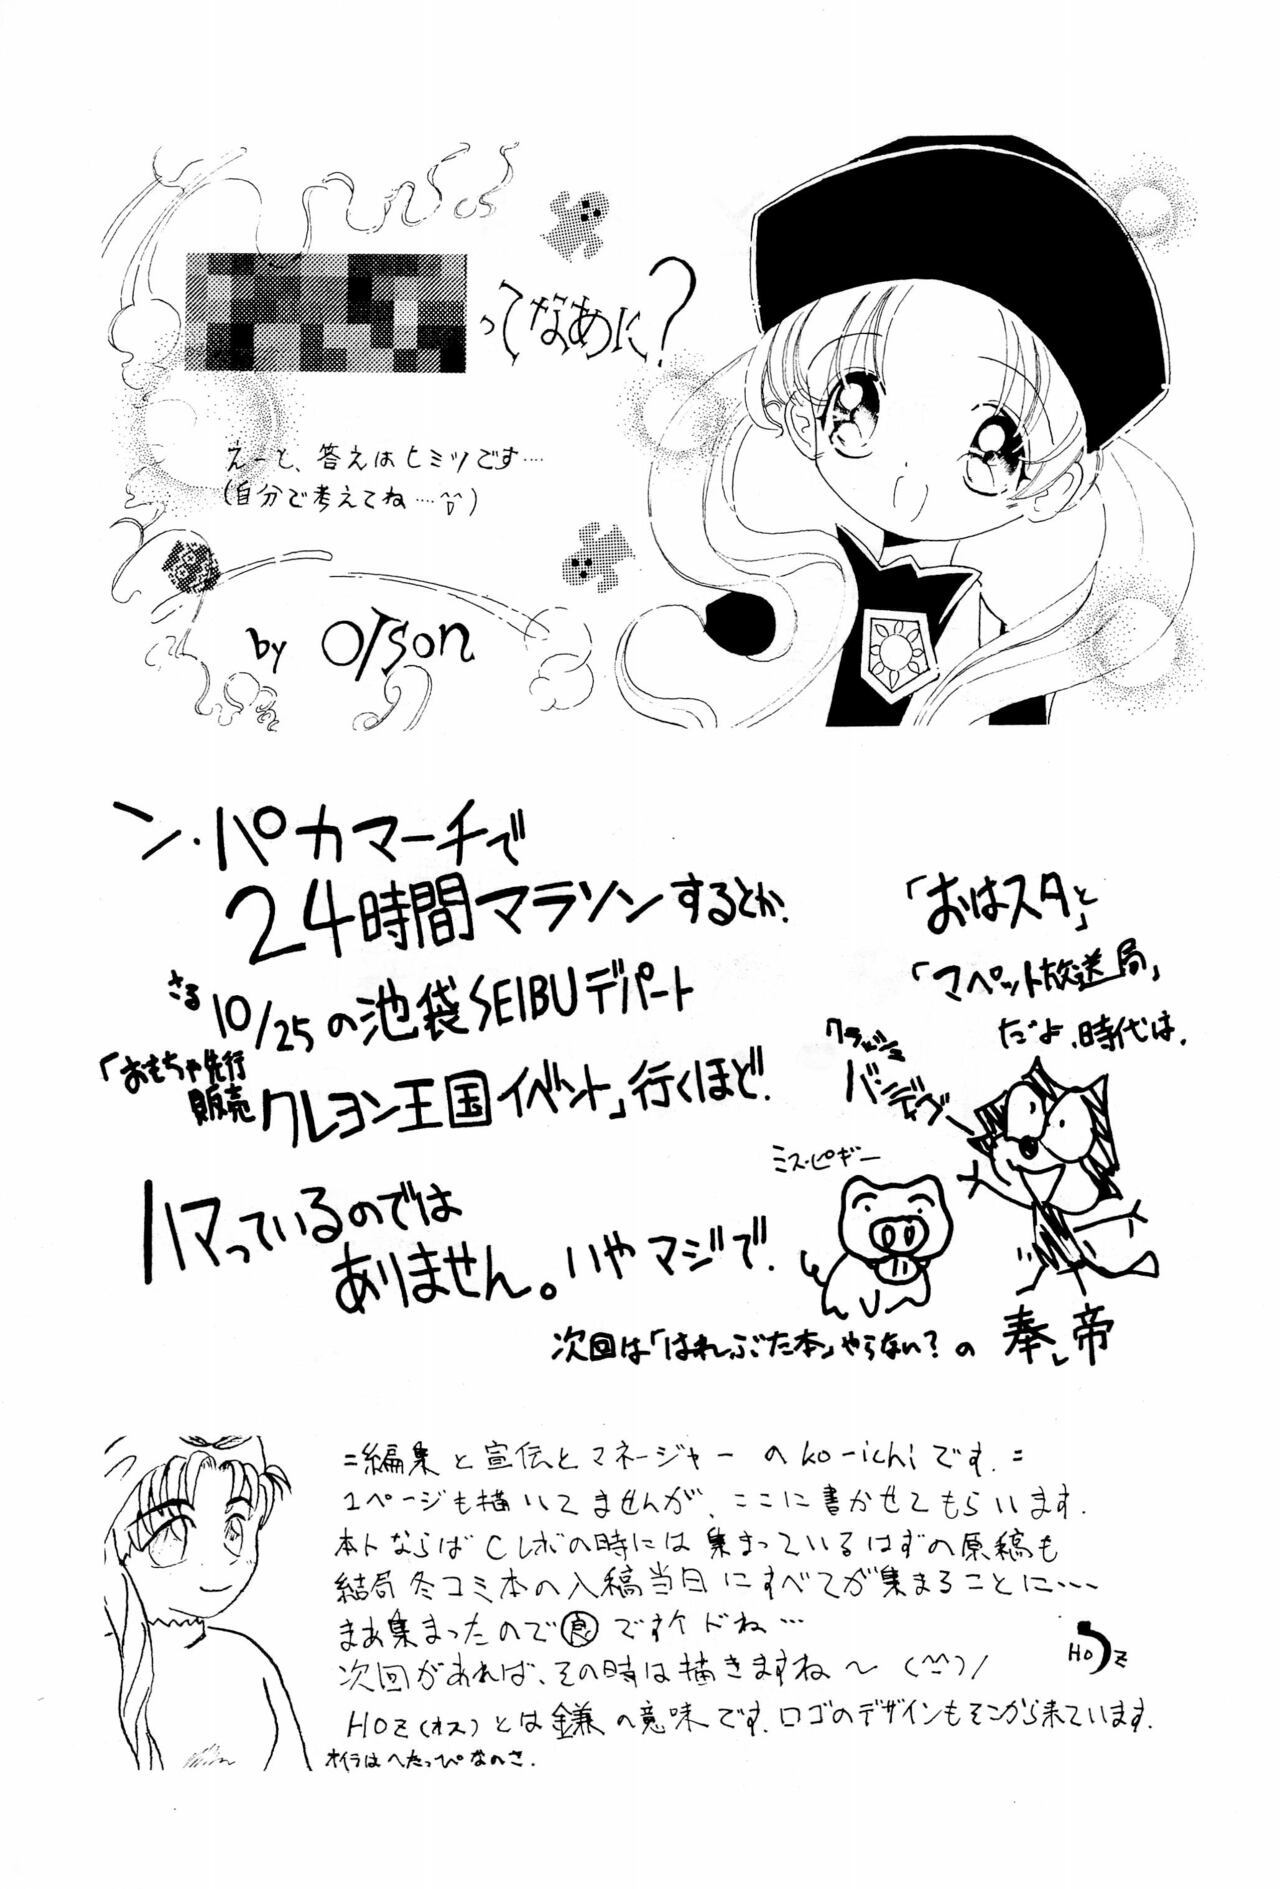 ってなあに?
えーと、答えはヒミツです‥‥
(自分で考えてね‥‥^^)
by orson
ン・パカマーチで
24時間マラソンするとか、
さる
10/25の池袋SEIBUデパート
「おもちゃ先行
販売
クレヨン王国イベント」行くほど、
ハマっているのでは
ありません。いやマジで、
「おはスタ」と
「マペット放送局」
だよ、時代は、
クラッシュ
バンディグー
ミス・ピギー
次回は「はれぶた本」やらない?の 奉帝
=編集と宣伝とマネージャー のko-ichiです.=
1ページも描いてませんが、ここに書かせてもらいます.
本トならばCレボの時には集まっているはずの原稿も
結局冬コミ本の入稿当日にすべてが集まることに…
まあ集まったので良ですケドね…
次回があれば、その時は描きますね〜 (^^)/
HOZ
HOZ(オス)とは鎌の意味です.ロゴのデザインもそこから来ています.
オイラはへたっぴなのさ.